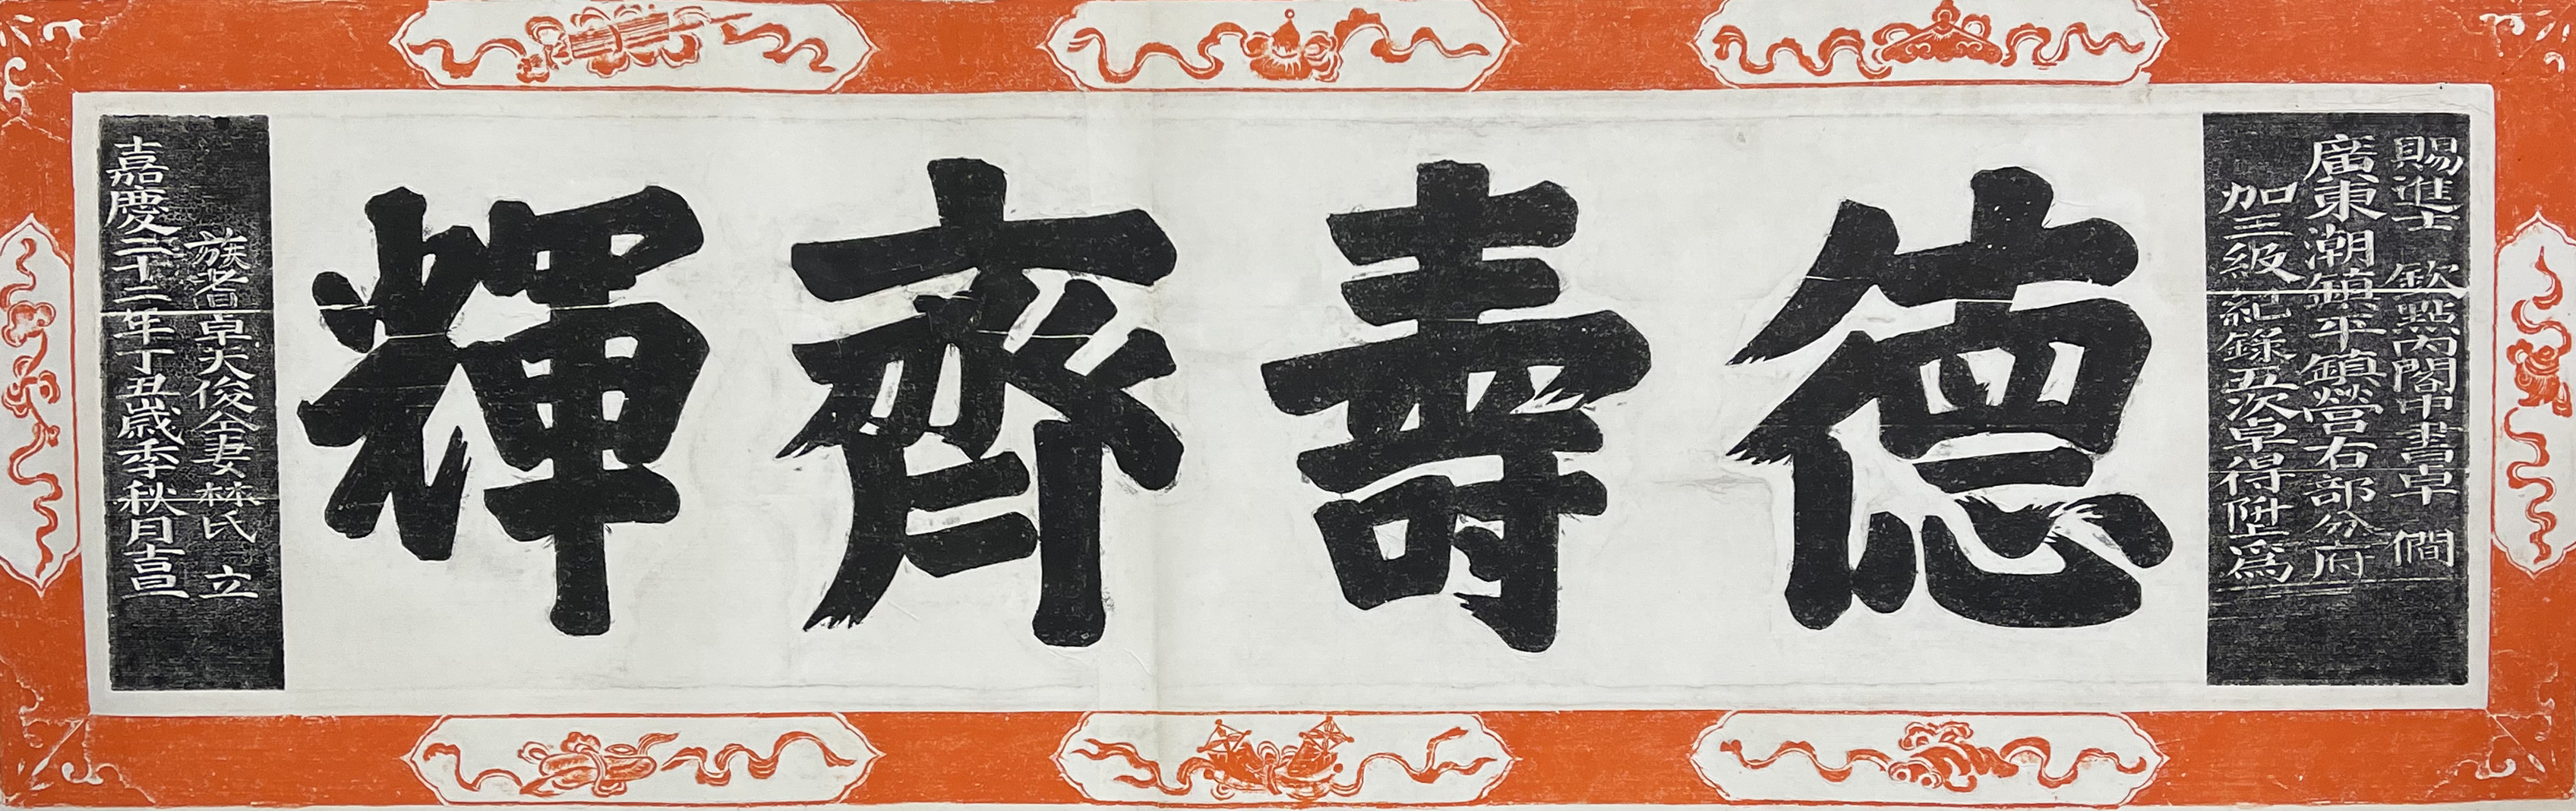 賜進士 欽點內閣中書卓 僩
廣東潮鎮平鎮營右部分府
加三級紀錄五次卓得陞為
德壽齊輝
族耆卓天俊仝妻林氏 立
嘉慶二十二年丁丑歲季秋月吉旦